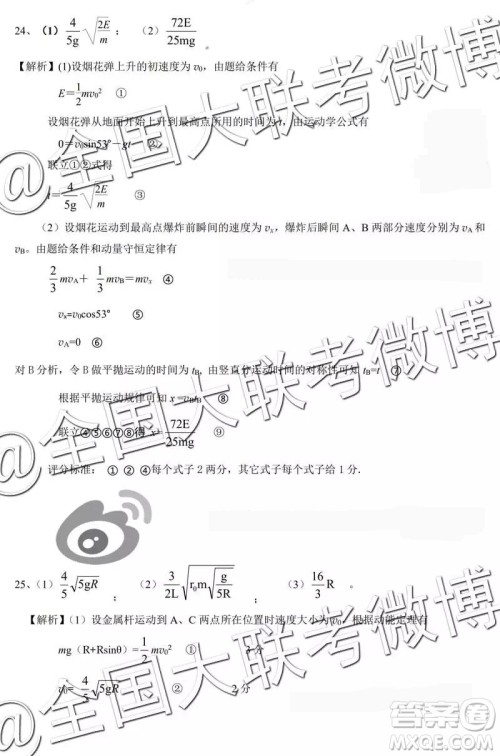 24、（1）4/5g √(2E/m)； （2）72E/25mg 。
【解析】(1)设烟花弹上升的初速度为 v₀，由题给条件有
E=1/2mv₀² ①
设烟花弹从地面开始上升到最高点所用的时间为 t，由运动学公式有
0=v₀sin53°－gt ②
联立①②式得
t=4/5g √(2E/m) ③
（2）设烟花运动到最高点爆炸前瞬间的速度为 vₓ，爆炸后瞬间 A、B 两部分速度分别为 vA 和
vB。由题给条件和动量守恒定律有
2/3 mvA＋ 1/3 mvB=mvₓ ④
vₓ=v₀cos53° ⑤
vA=0 ⑥
对 B 分析，令 B 做平抛运动的时间为 tB，由竖直分运动的对称性可知 tB=t ⑦
根据平抛运动规律可知 x=vBtB ⑧
联立④⑤⑥⑦⑧得 x=72E/25mg ⑨
评分标准： ①②④每个式子 2 分，其它式子每个式子给 1 分．
25、（1）4/5√(5gR) ； （2）3/2L √(r₀m√(g/5R)) ； （3）16/3 R
【解析】（1）设金属杆运动到 A、C 两点所在位置时速度大小为 v₀，根据动能定理有
mg（R+Rsinθ）=1/2 mv₀² ① 3 分
v₀= 4/5√(5gR) ② 2 分
@全国大联考微博
@全国大联考微博
@全国大联考微博
答案圈
MXQE.COM